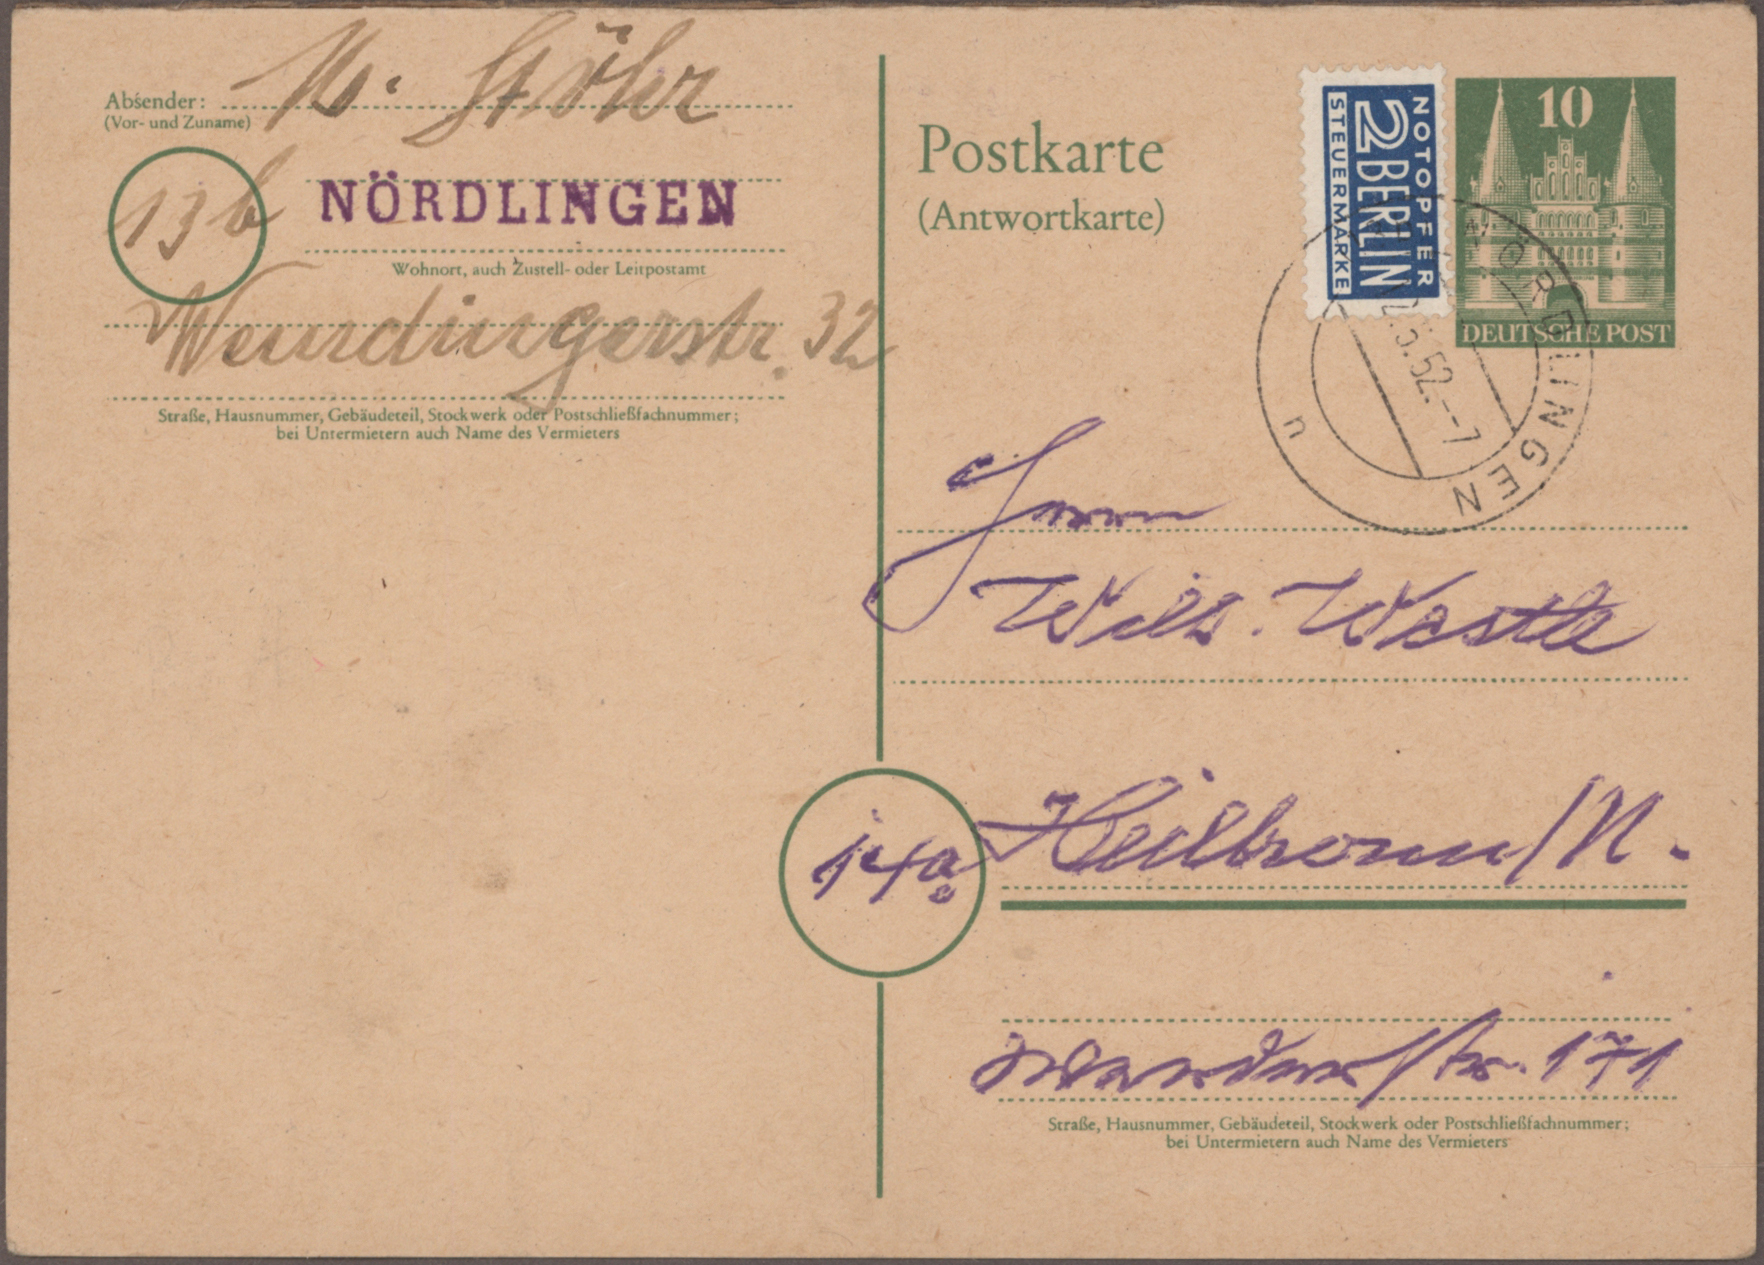 Absender:
(Vor- und Zuname)
Stöhr
13b
NÖRDLINGEN
Wohnort, auch Zustell- oder Leitpostamt
Wemdingerstr. 32
Straße, Hausnummer, Gebäudeteil, Stockwerk oder Postschließfachnummer;
bei Untermietern auch Name des Vermieters
Postkarte
(Antwortkarte)
NOTOPFER
2 BERLIN
STEUERMARKE
10
DEUTSCHE POST
NÖRDLINGEN
.5.52.--7
u
Herrn
Wilh.
14a Heilbronn/N.
str. 171
Straße, Hausnummer, Gebäudeteil, Stockwerk oder Postschließfachnummer;
bei Untermietern auch Name des Vermieters